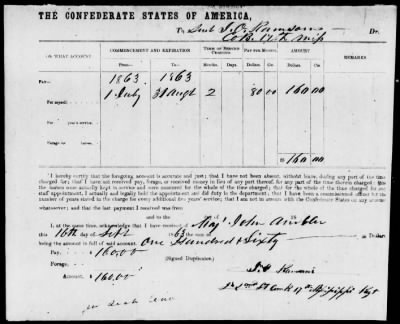 THE CONFEDERATE STATES OF AMERICA,
To Lieut J. O. Ramsour Dr.
Co K 17th Miss
ON WHAT ACCOUNT COMMENCEMENT AND EXPIRATION TERM OF SERVICE CHARGED PAY PER MONTH AMOUNT REMARKS
From— To— Months. Days. Dollars. Cts. Dollars. Cts.
PAY— 1863. 1863
For myself 1 July 31 Augt 2 80 00 160 00
For years' service
FORAGE—
For horses
$ 160 00
I hereby certify that the foregoing account is accurate and just; that I have not been absent, without leave, during any part of the time
charged for; that I have not received pay, forage, or received money in lieu of any part thereof, for any part of the time therein charged; that the
horses were actually kept in service and were mustered for the whole of the time charged; that for the whole of the time charged for my
staff appointment, I actually and legally held the appointment and did duty in the department; that I have been a commissioned officer for the
number of years stated in the charge for every additional five years' service; that I am not in arrears with the Confederate States on any account
whatsoever; and that the last payment I received was from
and to the day of 18
I, at the same time, acknowledge that I have received of Maj John Ambler
this 16th day of Sept 1863 the sum of Dollars,
being the amount in full of said account. One Hundred & Sixty
Pay, - - $ 160.00 (Signed Duplicates)
Forage
Amount, - $ 160.00